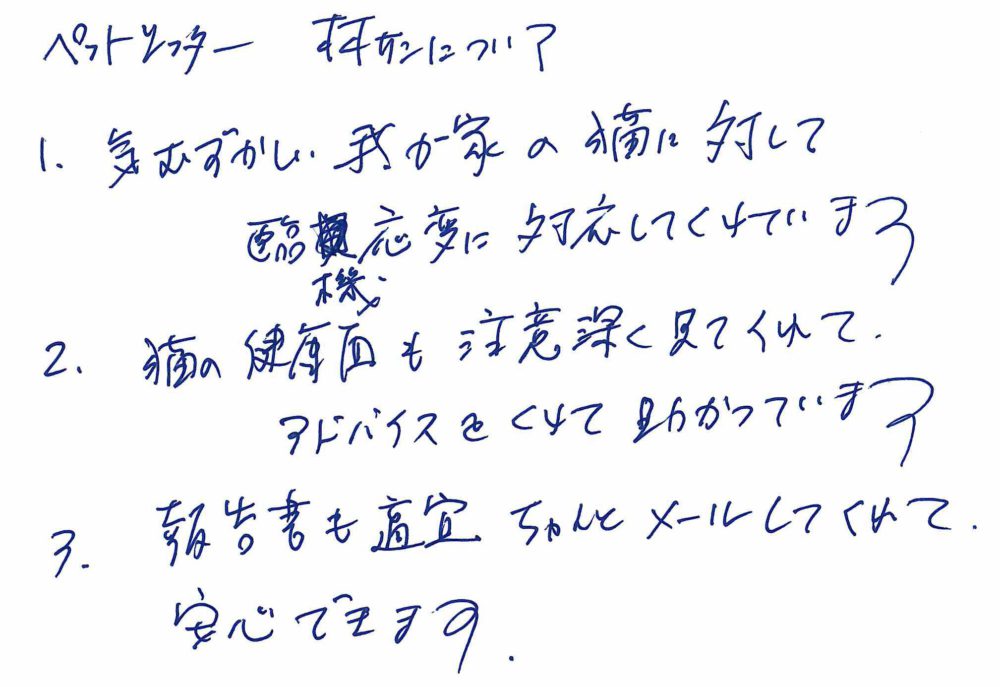 ペットシッター サンについて
1. 気むずかしい我が家の猫に対して
臨応変に対応してくれています
機
2. 猫の健康面も注意深く見てくれて.
アドバイスをくれて助かっています
3. 報告書も適宜ちゃんとメールしてくれて.
安心できます.